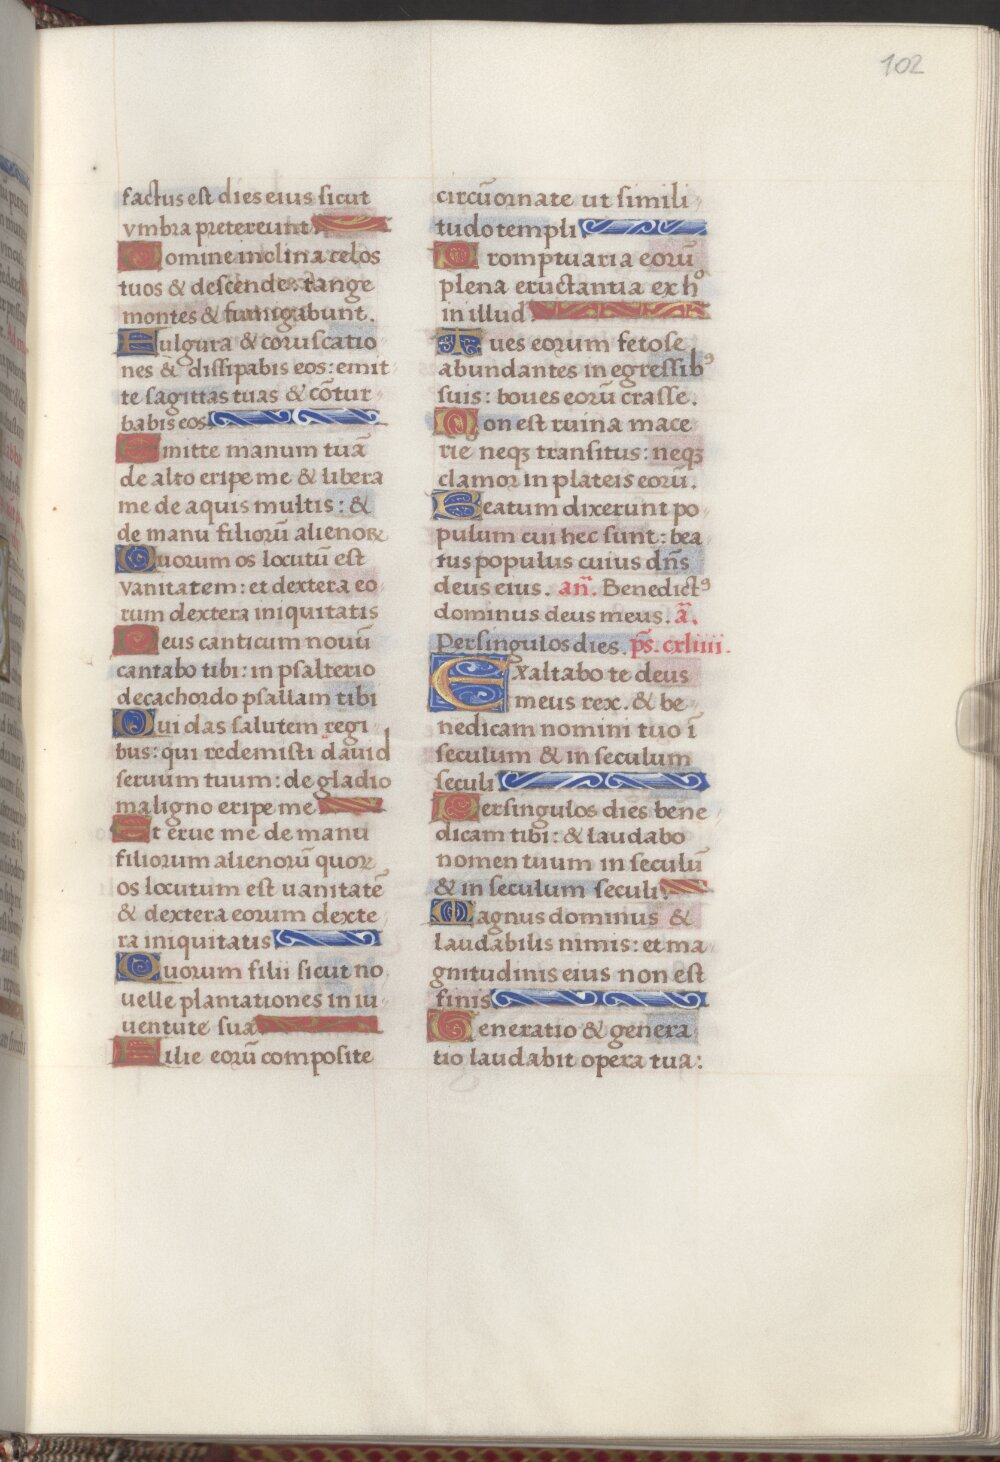 102
factus est dies eius sicut
vmbra pretereunt
Domine inclina celos
tuos & descende: tange
montes & fumigabunt.
Fulgura & coruscatio
nes & dissipabis eos: emit
te sagittas tuas & cōtur
babis eos
Emitte manum tuā
de alto eripe me & libera
me de aquis multis: &
de manu filiorū alienoꝝ
Quorum os locutū est
vanitatem: et dextera eo
rum dextera iniquitatis
Deus canticum nouū
cantabo tibi: in psalterio
decachordo psallam tibi
Qui das salutem regi
bus: qui redemisti dauid
seruum tuum: de gladio
maligno eripe me
Et erue me de manu
filiorum alienorū quoꝝ
os locutum est uanitatē
& dextera eorum dexte
ra iniquitatis
Quorum filii sicut no
uelle plantationes in iu
uentute sua
Filie eorū composite
circūornate ut simili
tudo templi
Promptuaria eorū
plena eructantia ex hͦ
in illud
Oues eorum fetose
abundantes in egressibꝰ
suis: boues eorū crasse.
Non est ruina mace
rie neqꝫ transitus: neqꝫ
clamor in plateis eorū.
Beatum dixerunt po
pulum cui hec sunt: bea
tus populus cuius dn̄s
deus eius. an̄. Benedictꝰ
dominus deus meus. ā.
Per singulos dies. ps̄. cxliiii.
Exaltabo te deus
meus rex. & be
nedicam nomini tuo ī
seculum & in seculum
seculi
Per singulos dies bene
dicam tibi: & laudabo
nomen tuum in seculū
& in seculum seculi
Magnus dominus &
laudabilis nimis: et ma
gnitudinis eius non est
finis
Generatio & genera
tio laudabit opera tua: